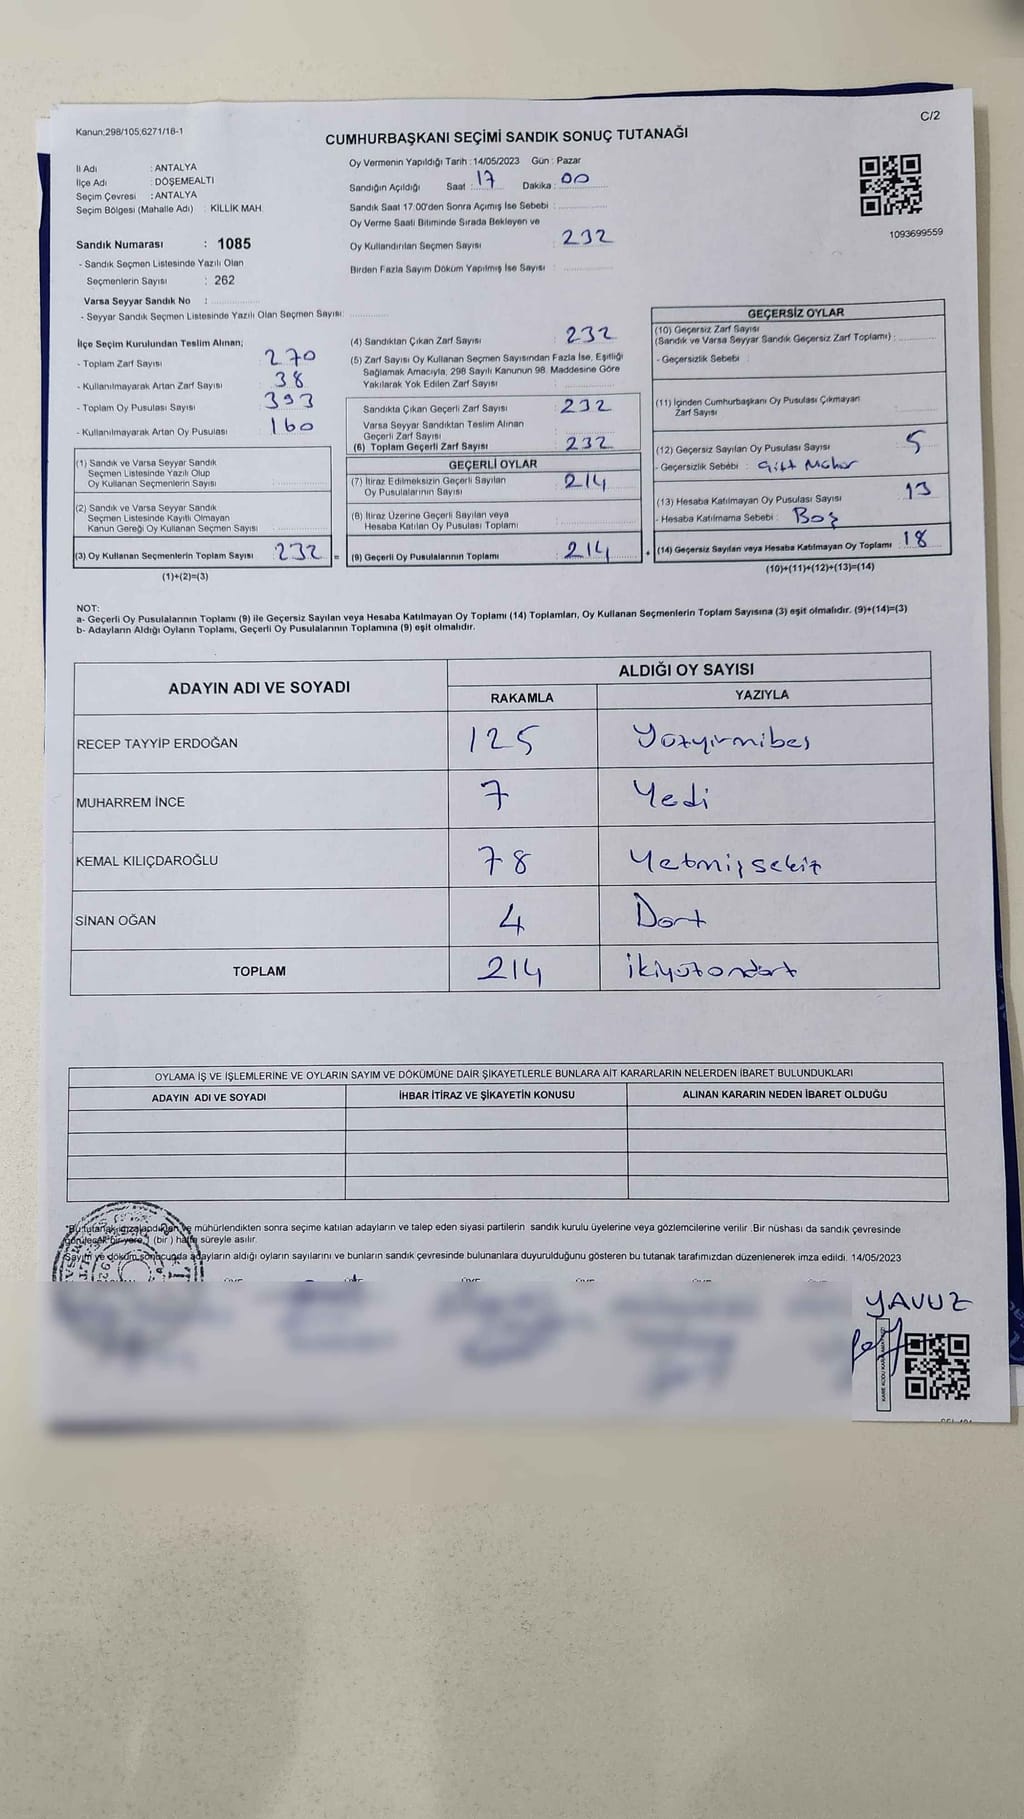 Kanun;298/105,6271/18-1
C/2
CUMHURBAŞKANI SEÇİMİ SANDIK SONUÇ TUTANAĞI
İl Adı : ANTALYA
İlçe Adı : DÖŞEMEALTI
Seçim Çevresi : ANTALYA
Seçim Bölgesi (Mahalle Adı) : KILLİK MAH.
Sandık Numarası : 1085
- Sandık Seçmen Listesinde Yazılı Olan
Seçmenlerin Sayısı : 262
Varsa Seyyar Sandık No :
- Seyyar Sandık Seçmen Listesinde Yazılı Olan Seçmen Sayısı:
Oy Vermenin Yapıldığı Tarih : 14/05/2023 Gün : Pazar
Sandığın Açıldığı Saat : 17 Dakika : 00
Sandık Saat 17:00'den Sonra Açımış İse Sebebi :
Oy Verme Saati Bitiminde Sırada Bekleyen ve
Oy Kullandırılan Seçmen Sayısı : 232
Birden Fazla Sayım Döküm Yapılmış İse Sayısı :
1093699559
İlçe Seçim Kurulundan Teslim Alınan;
- Toplam Zarf Sayısı : 270
- Kullanılmayarak Artan Zarf Sayısı : 38
- Toplam Oy Pusulası Sayısı : 393
- Kullanılmayarak Artan Oy Pusulası : 160
(1) Sandık ve Varsa Seyyar Sandık
Seçmen Listesinde Yazılı Olup
Oy Kullanan Seçmenlerin Sayısı :
(2) Sandık ve Varsa Seyyar Sandık
Seçmen Listesinde Kayıtlı Olmayan
Kanun Gereği Oy Kullanan Seçmen Sayısı :
(3) Oy Kullanan Seçmenlerin Toplam Sayısı : 232 =
(1)+(2)=(3)
(4) Sandıktan Çıkan Zarf Sayısı : 232
(5) Zarf Sayısı Oy Kullanan Seçmen Sayısından Fazla İse, Eşitliği
Sağlamak Amacıyla, 298 Sayılı Kanunun 98. Maddesine Göre
Yakılarak Yok Edilen Zarf Sayısı :
Sandıkta Çıkan Geçerli Zarf Sayısı : 232
Varsa Seyyar Sandıktan Teslim Alınan
Geçerli Zarf Sayısı :
(6) Toplam Geçerli Zarf Sayısı : 232
GEÇERLİ OYLAR
(7) İtiraz Edilmeksizin Geçerli Sayılan
Oy Pusulalarının Sayısı : 214
(8) İtiraz Üzerine Geçerli Sayılan veya
Hesaba Katılan Oy Pusulası Toplamı :
(9) Geçerli Oy Pusulalarının Toplamı : 214 +
GEÇERSİZ OYLAR
(10) Geçersiz Zarf Sayısı
(Sandık ve Varsa Seyyar Sandık Geçersiz Zarf Toplamı) :
- Geçersizlik Sebebi :
(11) İçinden Cumhurbaşkanı Oy Pusulası Çıkmayan
Zarf Sayısı :
(12) Geçersiz Sayılan Oy Pusulası Sayısı : 5
- Geçersizlik Sebebi : Çift Mühür
(13) Hesaba Katılmayan Oy Pusulası Sayısı : 13
- Hesaba Katılmama Sebebi : Boş
(14) Geçersiz Sayılan veya Hesaba Katılmayan Oy Toplamı : 18
(10)+(11)+(12)+(13)=(14)
NOT:
a- Geçerli Oy Pusulalarının Toplamı (9) ile Geçersiz Sayılan veya Hesaba Katılmayan Oy Toplamı (14) Toplamları, Oy Kullanan Seçmenlerin Toplam Sayısına (3) eşit olmalıdır. (9)+(14)=(3)
b- Adayların Aldığı Oyların Toplamı, Geçerli Oy Pusulalarının Toplamına (9) eşit olmalıdır.
ADAYIN ADI VE SOYADI ALDIĞI OY SAYISI
RAKAMLA YAZIYLA
RECEP TAYYİP ERDOĞAN 125 Yüzyirmibeş
MUHARREM İNCE 7 Yedi
KEMAL KILIÇDAROĞLU 78 Yetmişsekiz
SİNAN OĞAN 4 Dört
TOPLAM 214 ikiyüzondört
OYLAMA İŞ VE İŞLEMLERİNE VE OYLARIN SAYIM VE DÖKÜMÜNE DAİR ŞİKAYETLERLE BUNLARA AİT KARARLARIN NELERDEN İBARET BULUNDUKLARI
ADAYIN ADI VE SOYADI İHBAR İTİRAZ VE ŞİKAYETİN KONUSU ALINAN KARARIN NEDEN İBARET OLDUĞU
"Bu tutanak imzalandıktan ve mühürlendikten sonra seçime katılan adayların ve talep eden siyasi partilerin sandık kurulu üyelerine veya gözlemcilerine verilir. Bir nüshası da sandık çevresinde
görülecek bir yere, 1 (bir) hafta süreyle asılır.
Sayım ve döküm sonucunda adayların aldığı oyların sayılarını ve bunların sandık çevresinde bulunanlara duyurulduğunu gösteren bu tutanak tarafımızdan düzenlenerek imza edildi. 14/05/2023
YAVUZ